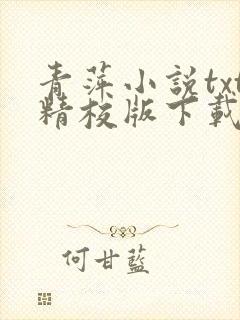 青萍小説txt
精校版下載
何甘藍